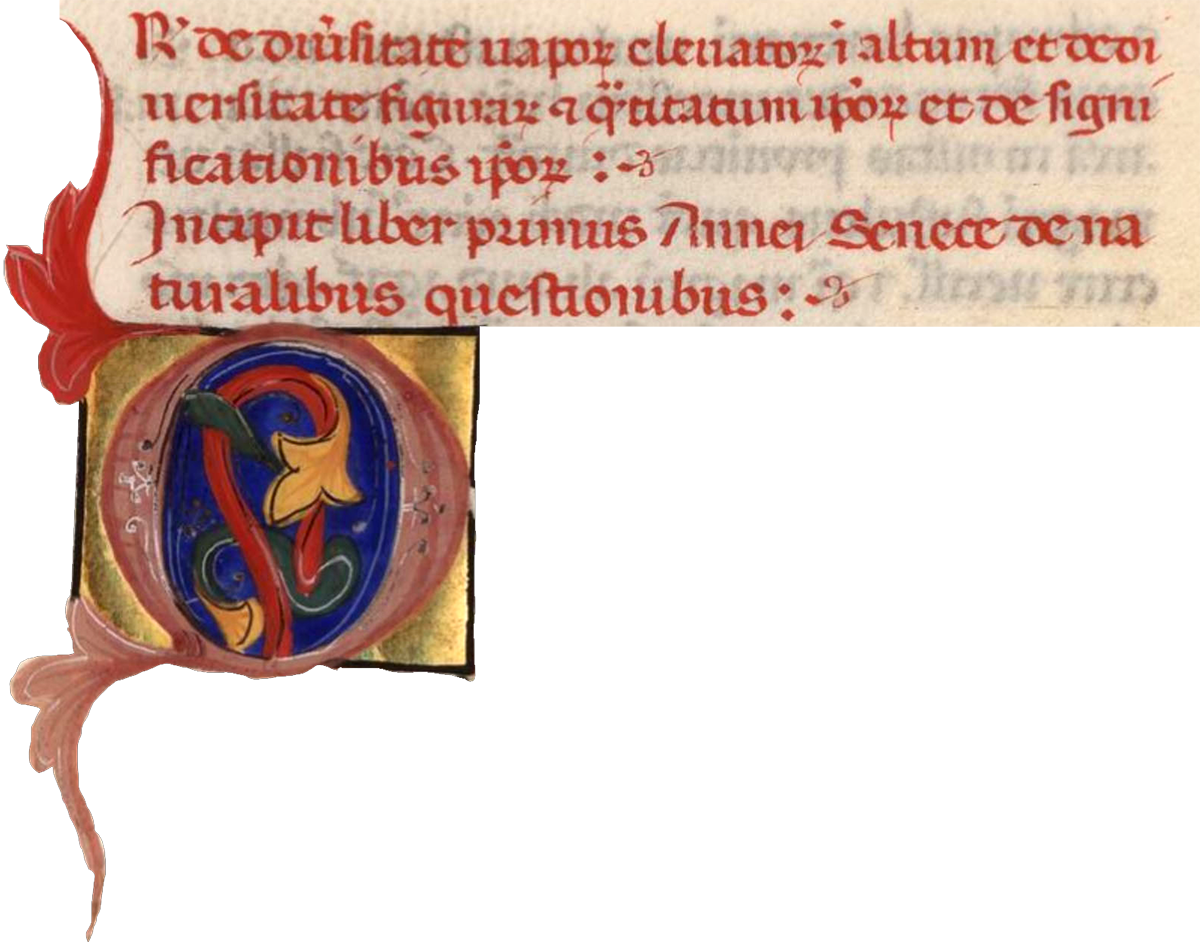 R' de diu'sitate uapoꝝ eleuatoꝝ ī altum et de di
uersitate figuraꝝ ⁊ q̄titatum ip̄oꝝ et de signi
ficationibus ip̄oꝝ :
Incipit liber primus Annei Senece de na
turalibus questionibus :
O